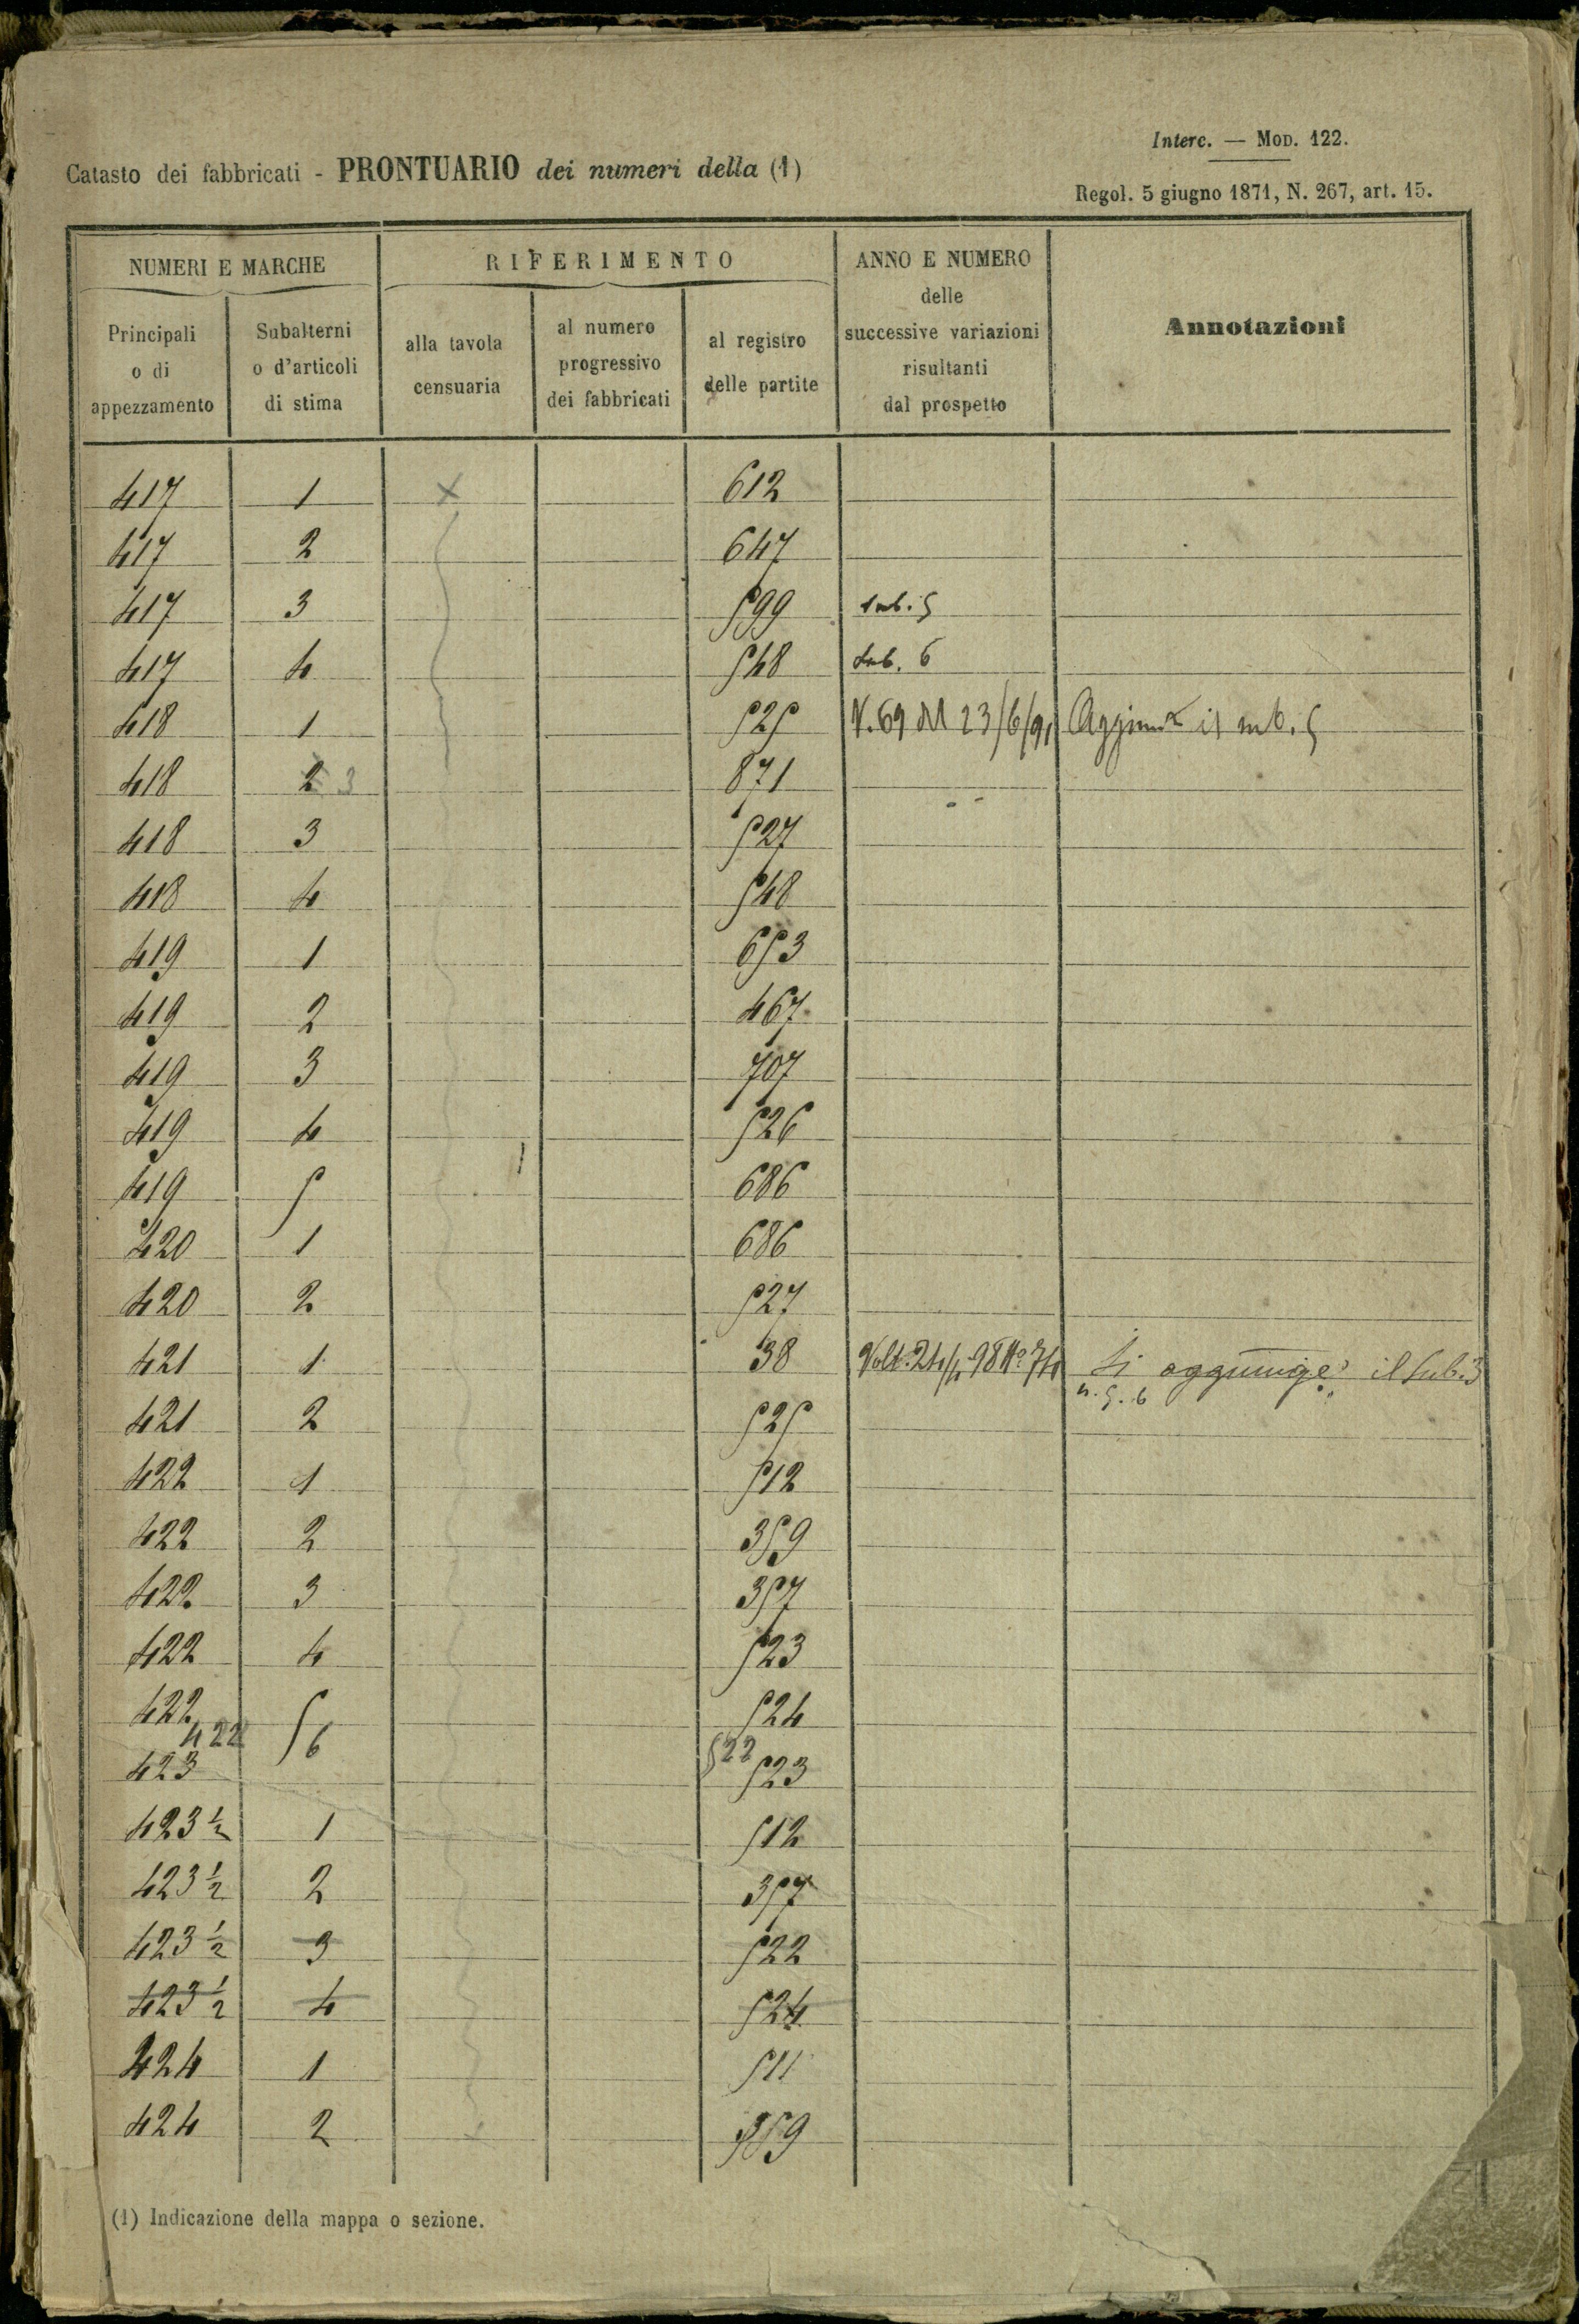 Interc. — Mod. 122.
Catasto dei fabbricati - PRONTUARIO dei numeri della (1)
Regol. 5 giugno 1871, N. 267, art. 15.
NUMERI E MARCHE RIFERIMENTO ANNO E NUMERO delle successive variazioni risultanti dal prospetto Annotazioni
Principali o di appezzamento Subalterni o d'articoli di stima alla tavola censuaria al numero progressivo dei fabbricati al registro delle partite
417 1 x 612
417 2 647
417 3 599 sub. 5
417 4 548 sub. 6
418 1 525 V. 69 del 23/6/91 Aggiunto il sub. 5
418 2 3 871
418 3 527
418 4 548
419 1 653
419 2 467
419 3 707
419 4 526
419 5 686
420 1 686
420 2 527
421 1 38 Volt. 24/4 98 No 74 Si aggiunge il sub. 3
n. 5. 6
421 2 525
422 1 512
422 2 359
422 3 357
422 4 523
422 5 524
422 6 522
423 523
423 1/2 1 512
423 1/2 2 357
423 1/2 3 522
423 1/2 4 524
424 1 511
424 2 359
(1) Indicazione della mappa o sezione.